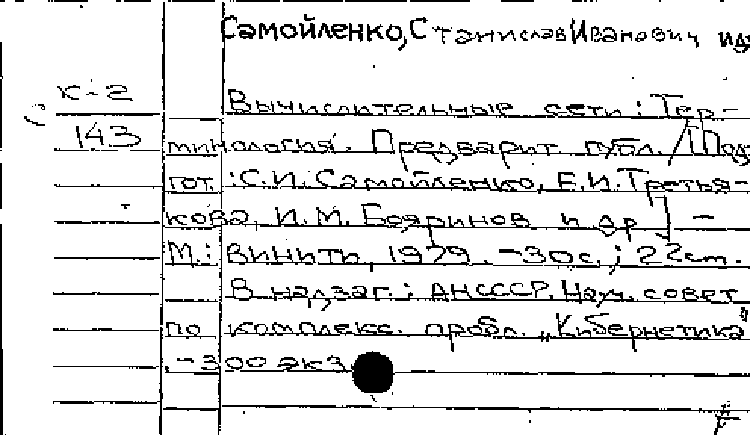 Самойленко, Станислав Иванович и др
К-2
143
Вычислительные сети: Тер-
минология. Предварит публ. / [Под
гот.: С.И. Самойленко, Е.И. Третья-
кова, И.М. Бояринов и др] -
М.: ВИНИТИ, 1979. - 30с.; 22см.
В надзаг.: АНСССР. Науч. совет
по комплекс. пробл. „Кибернетика"
. - 300 экз